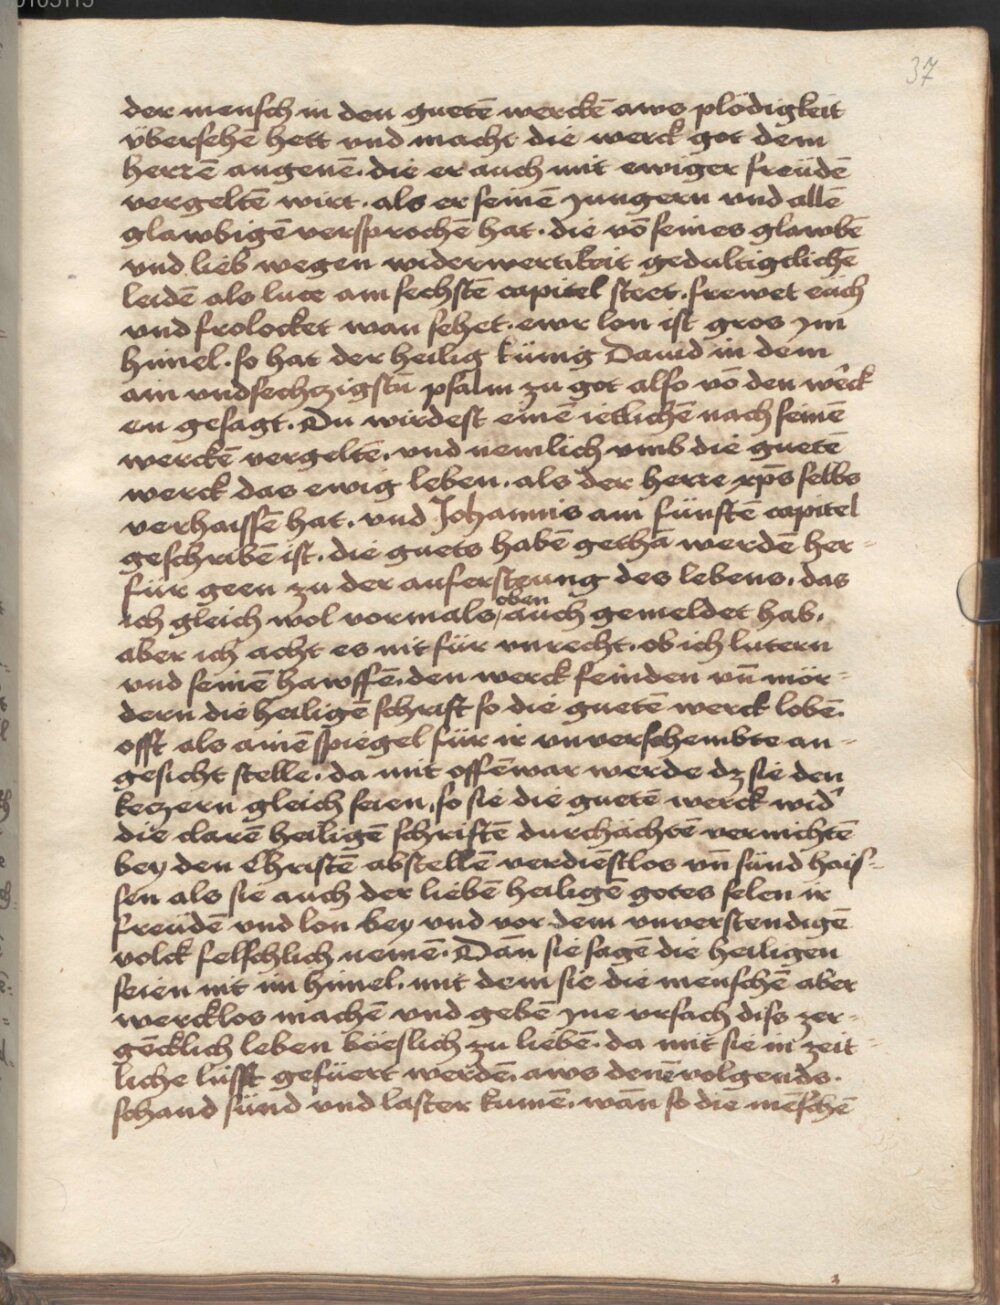 37
der mensch in den guetē werckē aws plödigkeit
übersehē hett vnd macht die werck got dem
herrē angenē. die er auch mit ewiger freüdē
vergeltē wirt. als er seinē jungern vnd allē
glawbigē versprochē hat. die vō seines glawbē
vnd lieb wegen widerwertikeit gedultigclichē
leidē als luce am sechstē capitel steet. frewet eüch
vnd frolocket wan sehet. ewr lon ist gros jm
himel. so hat der heilig künig Dauid in dem
ain vndsechzigstn̄ psalm zu got also vō den werck
en gesagt. Du wirdest einē ietlichē nach seinē
werckē vergeltē. vnd nemlich vmb die guetē
werck das ewig leben. als der herre xp̄s selbs
verhaissē hat. vnd Johannis am fünftē capitel
geschribē ist. die guets habē gethā werdē her-
für geen zu der aufersteung des lebens. das
ich gleich wol vormals oben auch gemeldet hab.
aber ich acht es nit für vnrecht. ob ich lutern
vnd seinē hawffē. den werck feinden vn̄ mör-
dern die heiligē schrift so die guetē werck lobē.
offt als ainē spiegel für ir vnverschembte an-
gesicht stelle. da mit offēwar werde dz sie den
keczern gleich seien. so sie die guetē werck wid'
die clarē heiligē schriftē durchächtē vernichtē
bey den Christē abstellē verdienstlos vn̄ sünd hais-
sen als sie auch der liebē heiligē gotes selen ir
freüdē vnd lon bey vnd vor dem vnverstendigē
volck felschlich nemē. Dan̄ sie sagē die heiligen
seien nit im himel. mit dem sie die menschē aber
wercklos machē vnd gebē jne vrsach diss zer-
gēcklich leben böeslich zu liebē. da mit sie in zeit-
liche lüsst gefüert werdē. aws denē volgends.
schand sünd vnd laster kumē. wan̄ so die mēschē